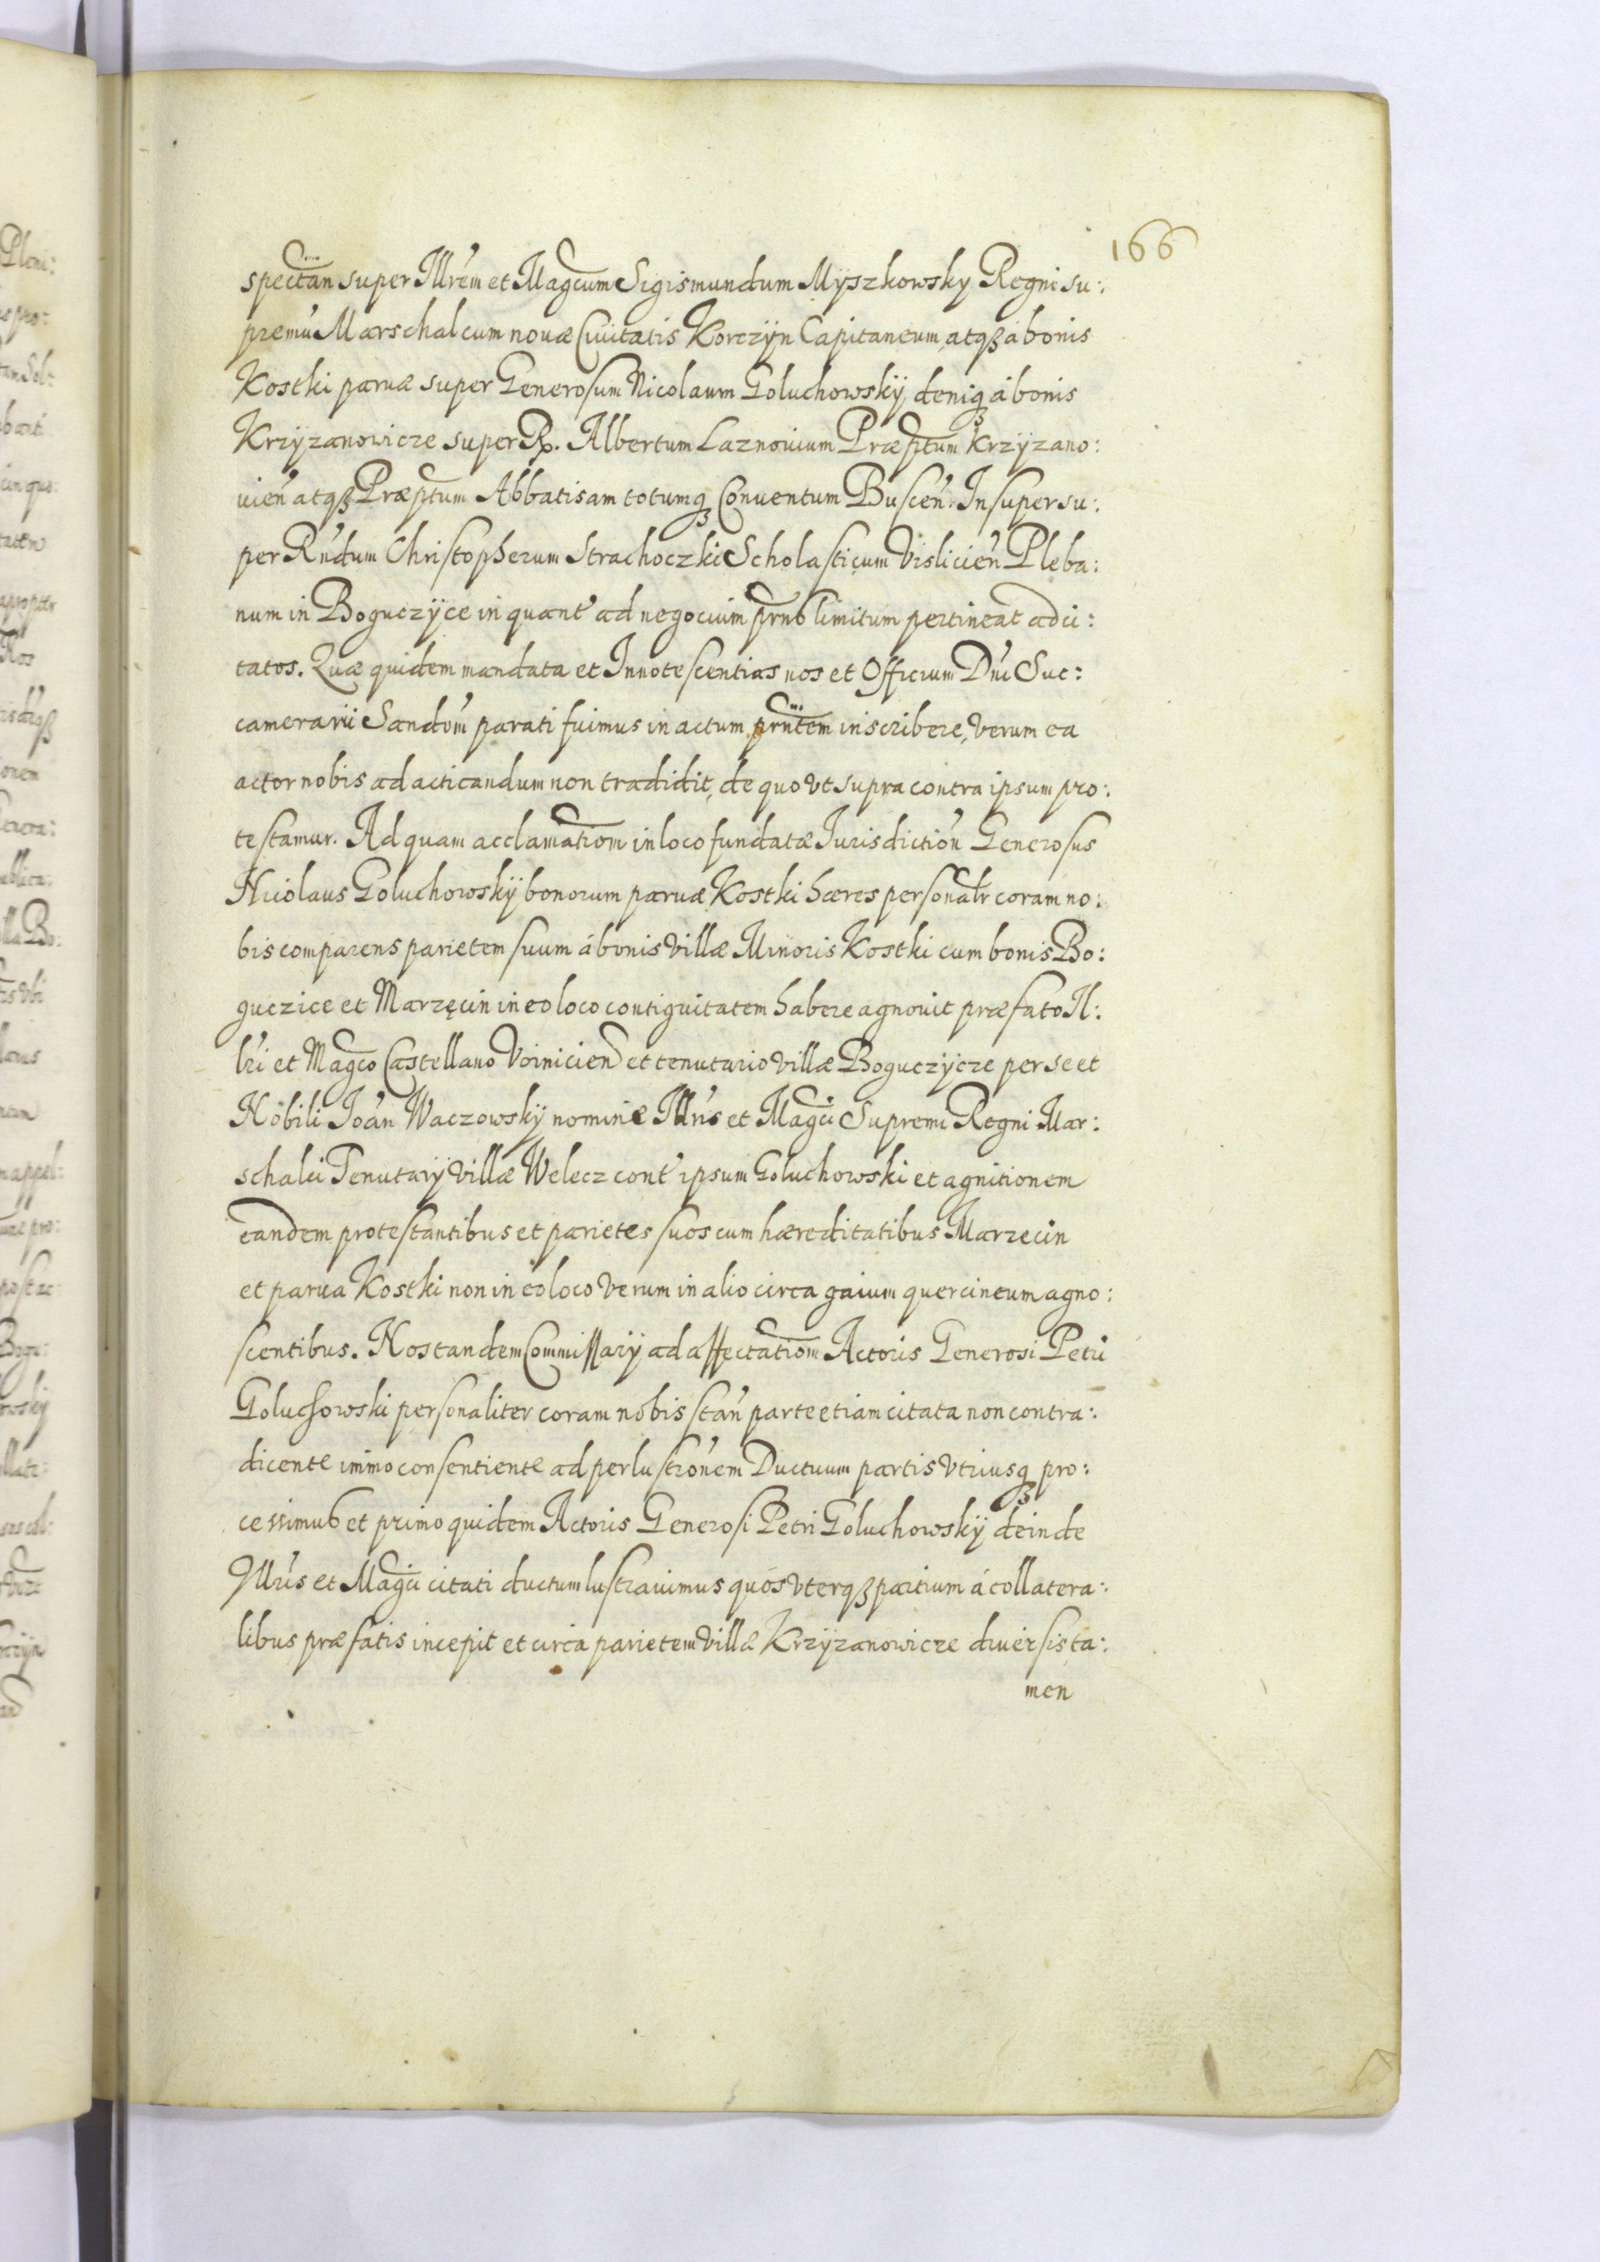 166
spectan̄ super Illrem et Magcum Sigismundum Myszkowsky Regni su:
premū Marschalcum nouæ Ciuitatis Korczÿn Capitaneum, atqȝ á bonis
Kostki paruæ super Generosum Nicolaum Goluchowskÿ, deniqȝ á bonis
Krzÿzanowicze super R. Albertum Laznouium Præptum Krzÿzano:
uien̄ atqȝ Præptum Abbatisam totumqȝ Conuentum Buscen̄. Insuper su:
per Rndum Christopherum Strachoczki Scholasticum Vislicien̄ Pleba:
num in Boguczÿce in quant' ad negocium prns limitum pertineat adci:
tatos. Quæ quidem mandata et Innotescentias nos et Officium Dni Suc:
camerarii Sandom̄ parati fuimus in actum prntem inscribere, verum ea
actor nobis ad acticandum non tradidit, de quo vt supra contra ipsum pro:
testamur. Ad quam acclamatiom in loco fundatæ Iurisdiction̄ Generosus
Nicolaus Goluchowskÿ bonorum paruæ Kostki hæres personalr coram no:
bis comparens parietem suum á bonis villæ Minoris Kostki cum bonis Bo:
guczice et Marzęcin in eo loco contiguitatem habere agnouit præfato Il:
lri et Magco Castellano Voinicien̄ et tenutario villæ Boguczÿcze per se et
Nobili Ioan̄ Waczowskÿ nomine Illris et Magci Supremi Regni Mar:
schalci Tenutarÿ villæ Welecz cont' ipsum Goluchowski et agnitionem
eandem protestantibus et parietes suos cum hæreditatibus Marzecin
et parua Kostki non in eo loco verum in alio circa gaium quercineum agno:
scentibus. Nos tandem Commissarÿ ad affectatiom Actoris Generosi Petri
Goluchowski personaliter coram nobis stan̄ parte etiam citata non contra:
dicente immo consentiente ad perlustronem Ductuum partis vtriusqȝ pro:
cessimus et primo quidem Actoris Generosi Petri Goluchowskÿ deinde
Illris et Magci citati ductum lustrauimus quos vterqȝ partium á collatera:
libus præfatis incepit et circa parietem villæ Krzÿzanowicze diuersis ta:
men